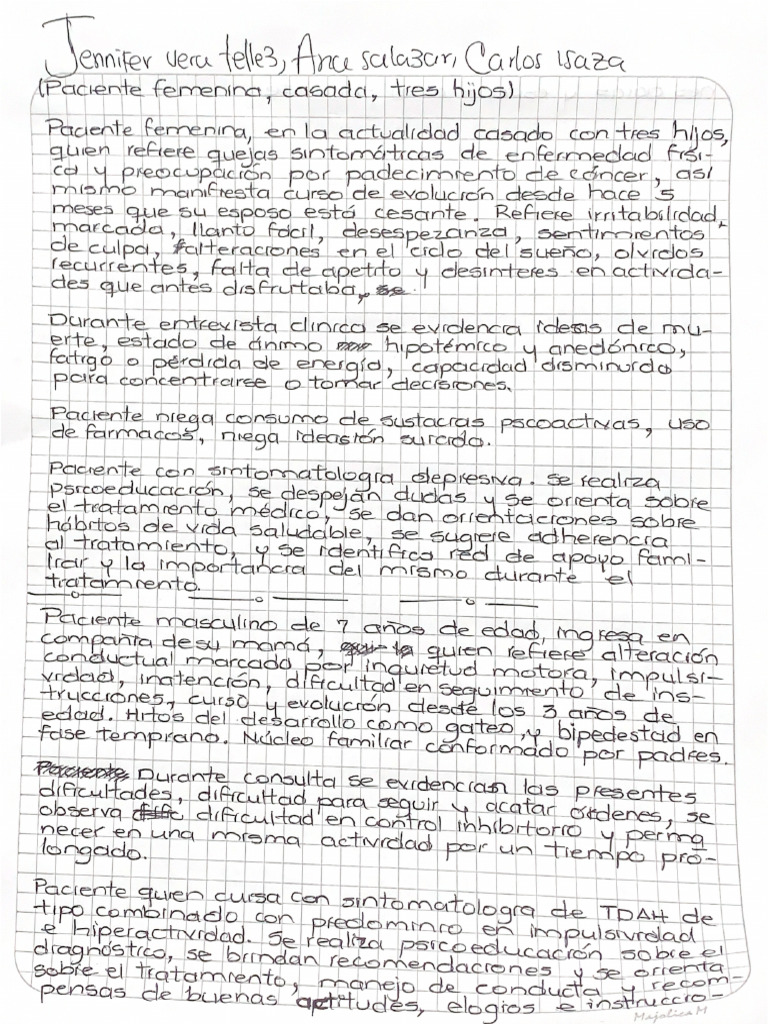 Jennifer vera tellez, Ana salazar, Carlos isaza
(Paciente femenina, casada, tres hijos)
Paciente femenina, en la actualidad casado con tres hijos,
quien refiere quejas sintomáticas de enfermedad físi-
ca y preocupación por padecimiento de cáncer, así
mismo manifiesta curso de evolución desde hace 5
meses que su esposo está cesante. Refiere irritabilidad
marcada, llanto fácil, desespezanza, sentimientos
de culpa, alteraciones en el ciclo del sueño, olvidos
recurrentes, falta de apetito y desinteres en activida-
des que antes disfrutaba,
Durante entrevista clínica se evidencia ideas de mu-
erte, estado de ánimo hipotémico y anedónico,
fatiga o pérdida de energía, capacidad disminuida
para concentrarse o tomar decisiones.
Paciente niega consumo de sustacias pscoactivas, uso
de farmacos, niega ideasión suicida.
Paciente con sintomatología depresiva. se realiza
psicoeducación, se despejan dudas y se orienta sobre
el tratamiento médico, se dan orientaciones sobre
hábitos de vida saludable, se sugiere adherencia
al tratamiento, y se identifica red de apoyo fami-
liar y la importancia del mismo durante el
tratamiento.
Paciente masculino de 7 años de edad, ingresa en
compañía de su mamá, quien refiere alteración
conductual marcada por inquietud motora, impulsi-
vidad, inatención, dificultad en seguimiento de ins-
trucciones, curso y evolución desde los 3 años de
edad. Hitos del desarrollo como gateo, y bipedestad en
fase temprana. Núcleo familiar conformado por padres.
Durante consulta se evidencian las presentes
dificultades, dificultad para seguir y acatar órdenes, se
observa dificultad en control inhibitorio y perma
necer en una misma actividad por un tiempo pro-
longado.
Paciente quien cursa con sintomatología de TDAH de
tipo combinado con predominio en impulsividad
e hiperactividad. Se realiza psicoeducación sobre el
diagnóstico, se brindan recomendaciones y se orienta
sobre el tratamiento, manejo de conducta y recom-
pensas de buenas aptitudes, elogios e instruccio-
Majolica M